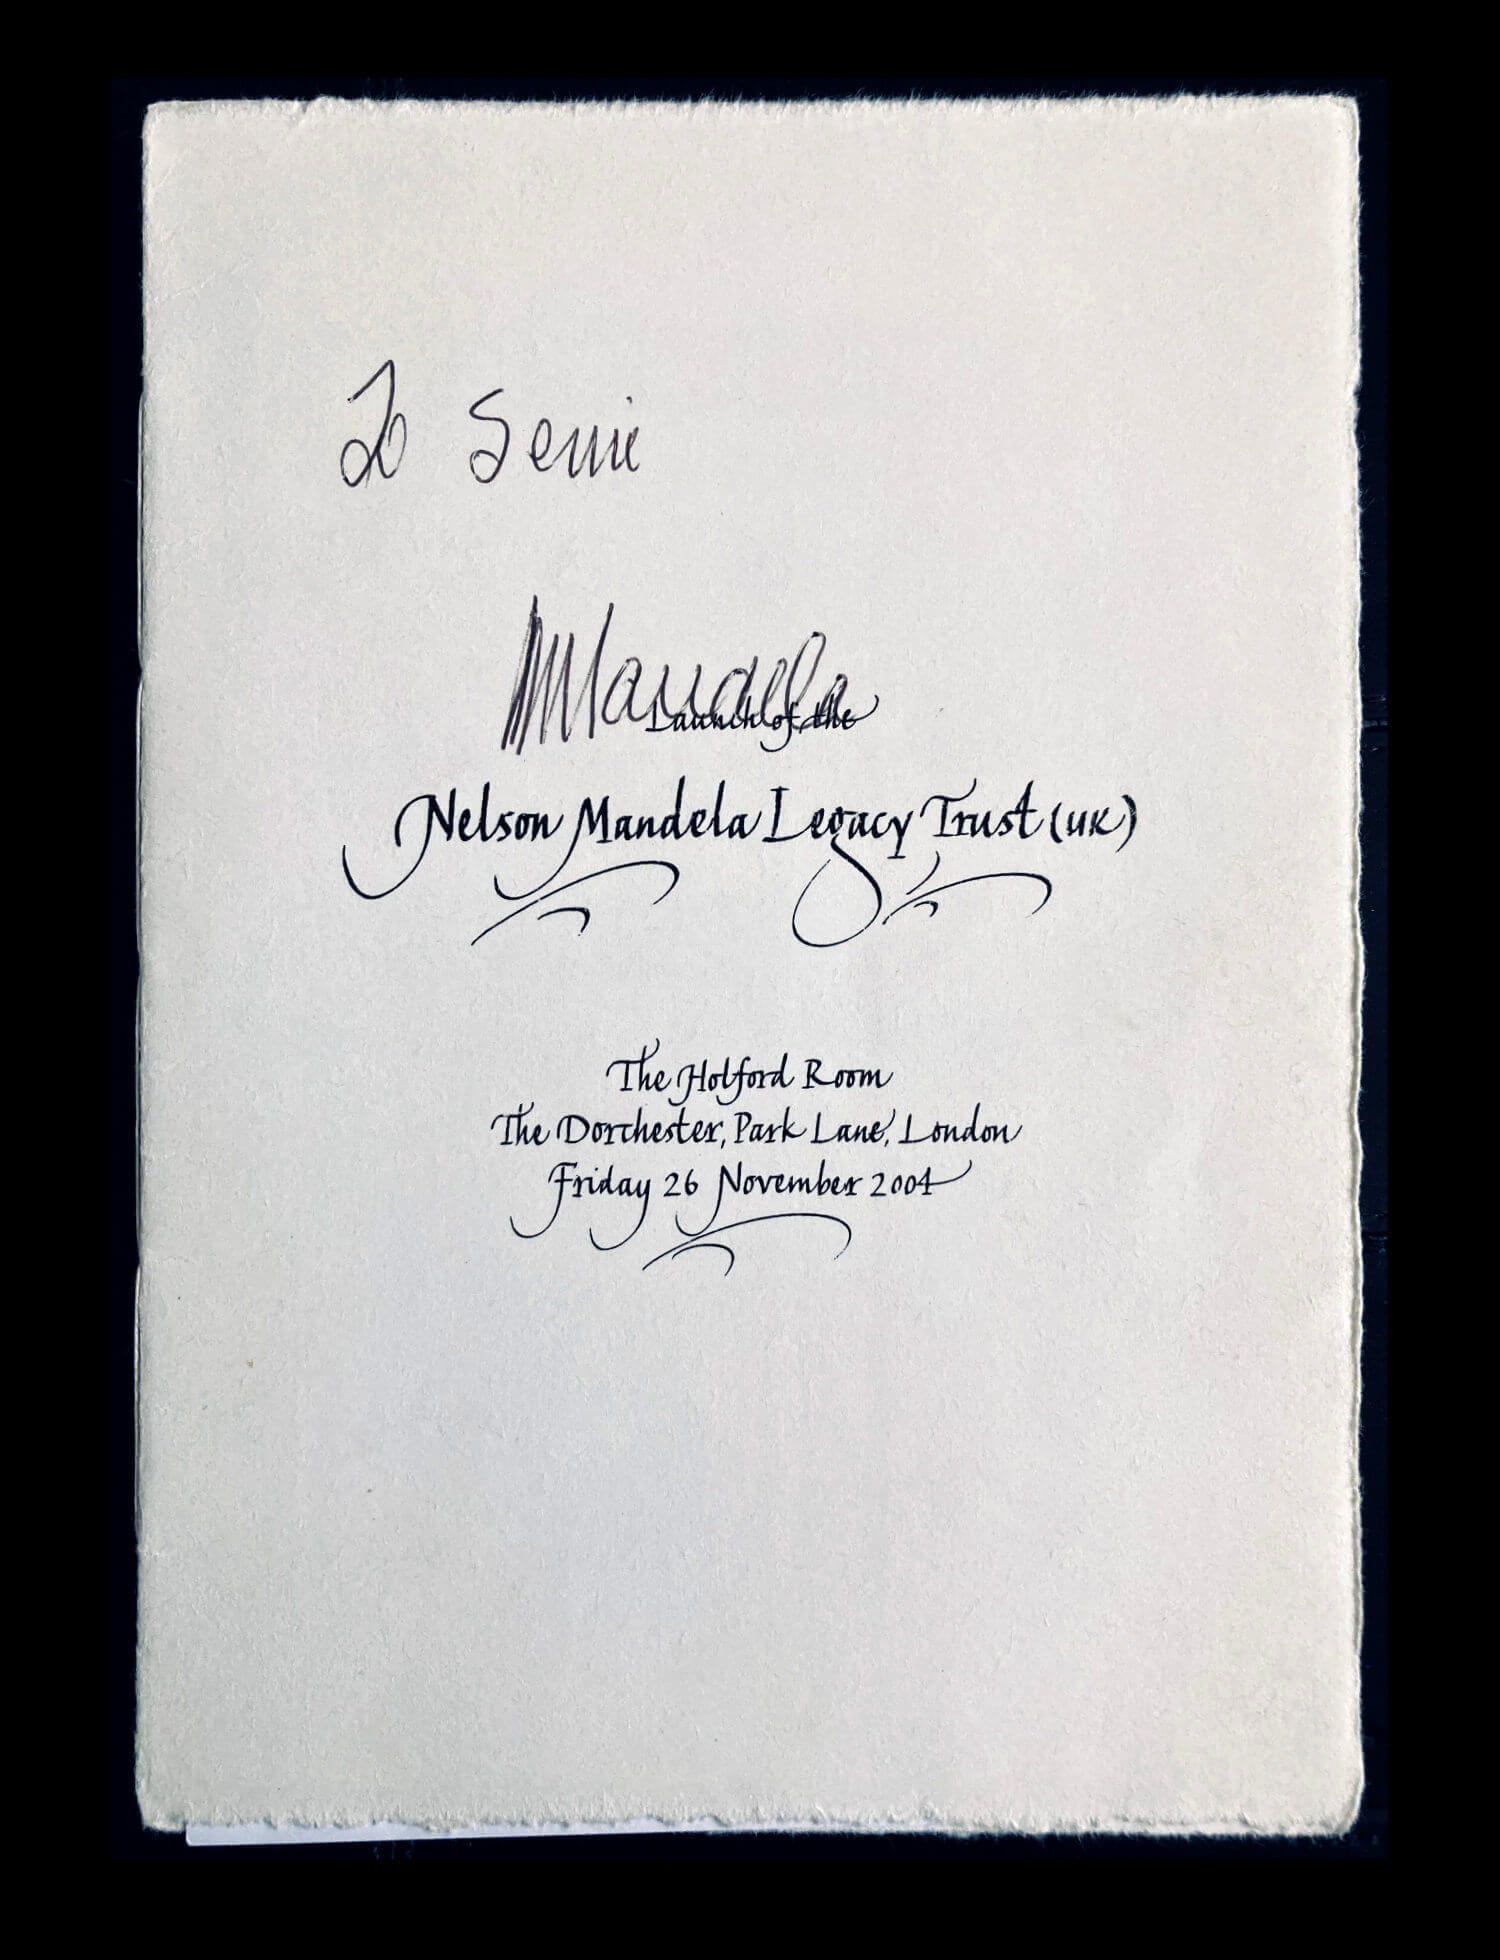 To
Mandela
Launch of the
Nelson Mandela Legacy Trust (UK)
The Holford Room
The Dorchester, Park Lane, London
Friday 26 November 2004